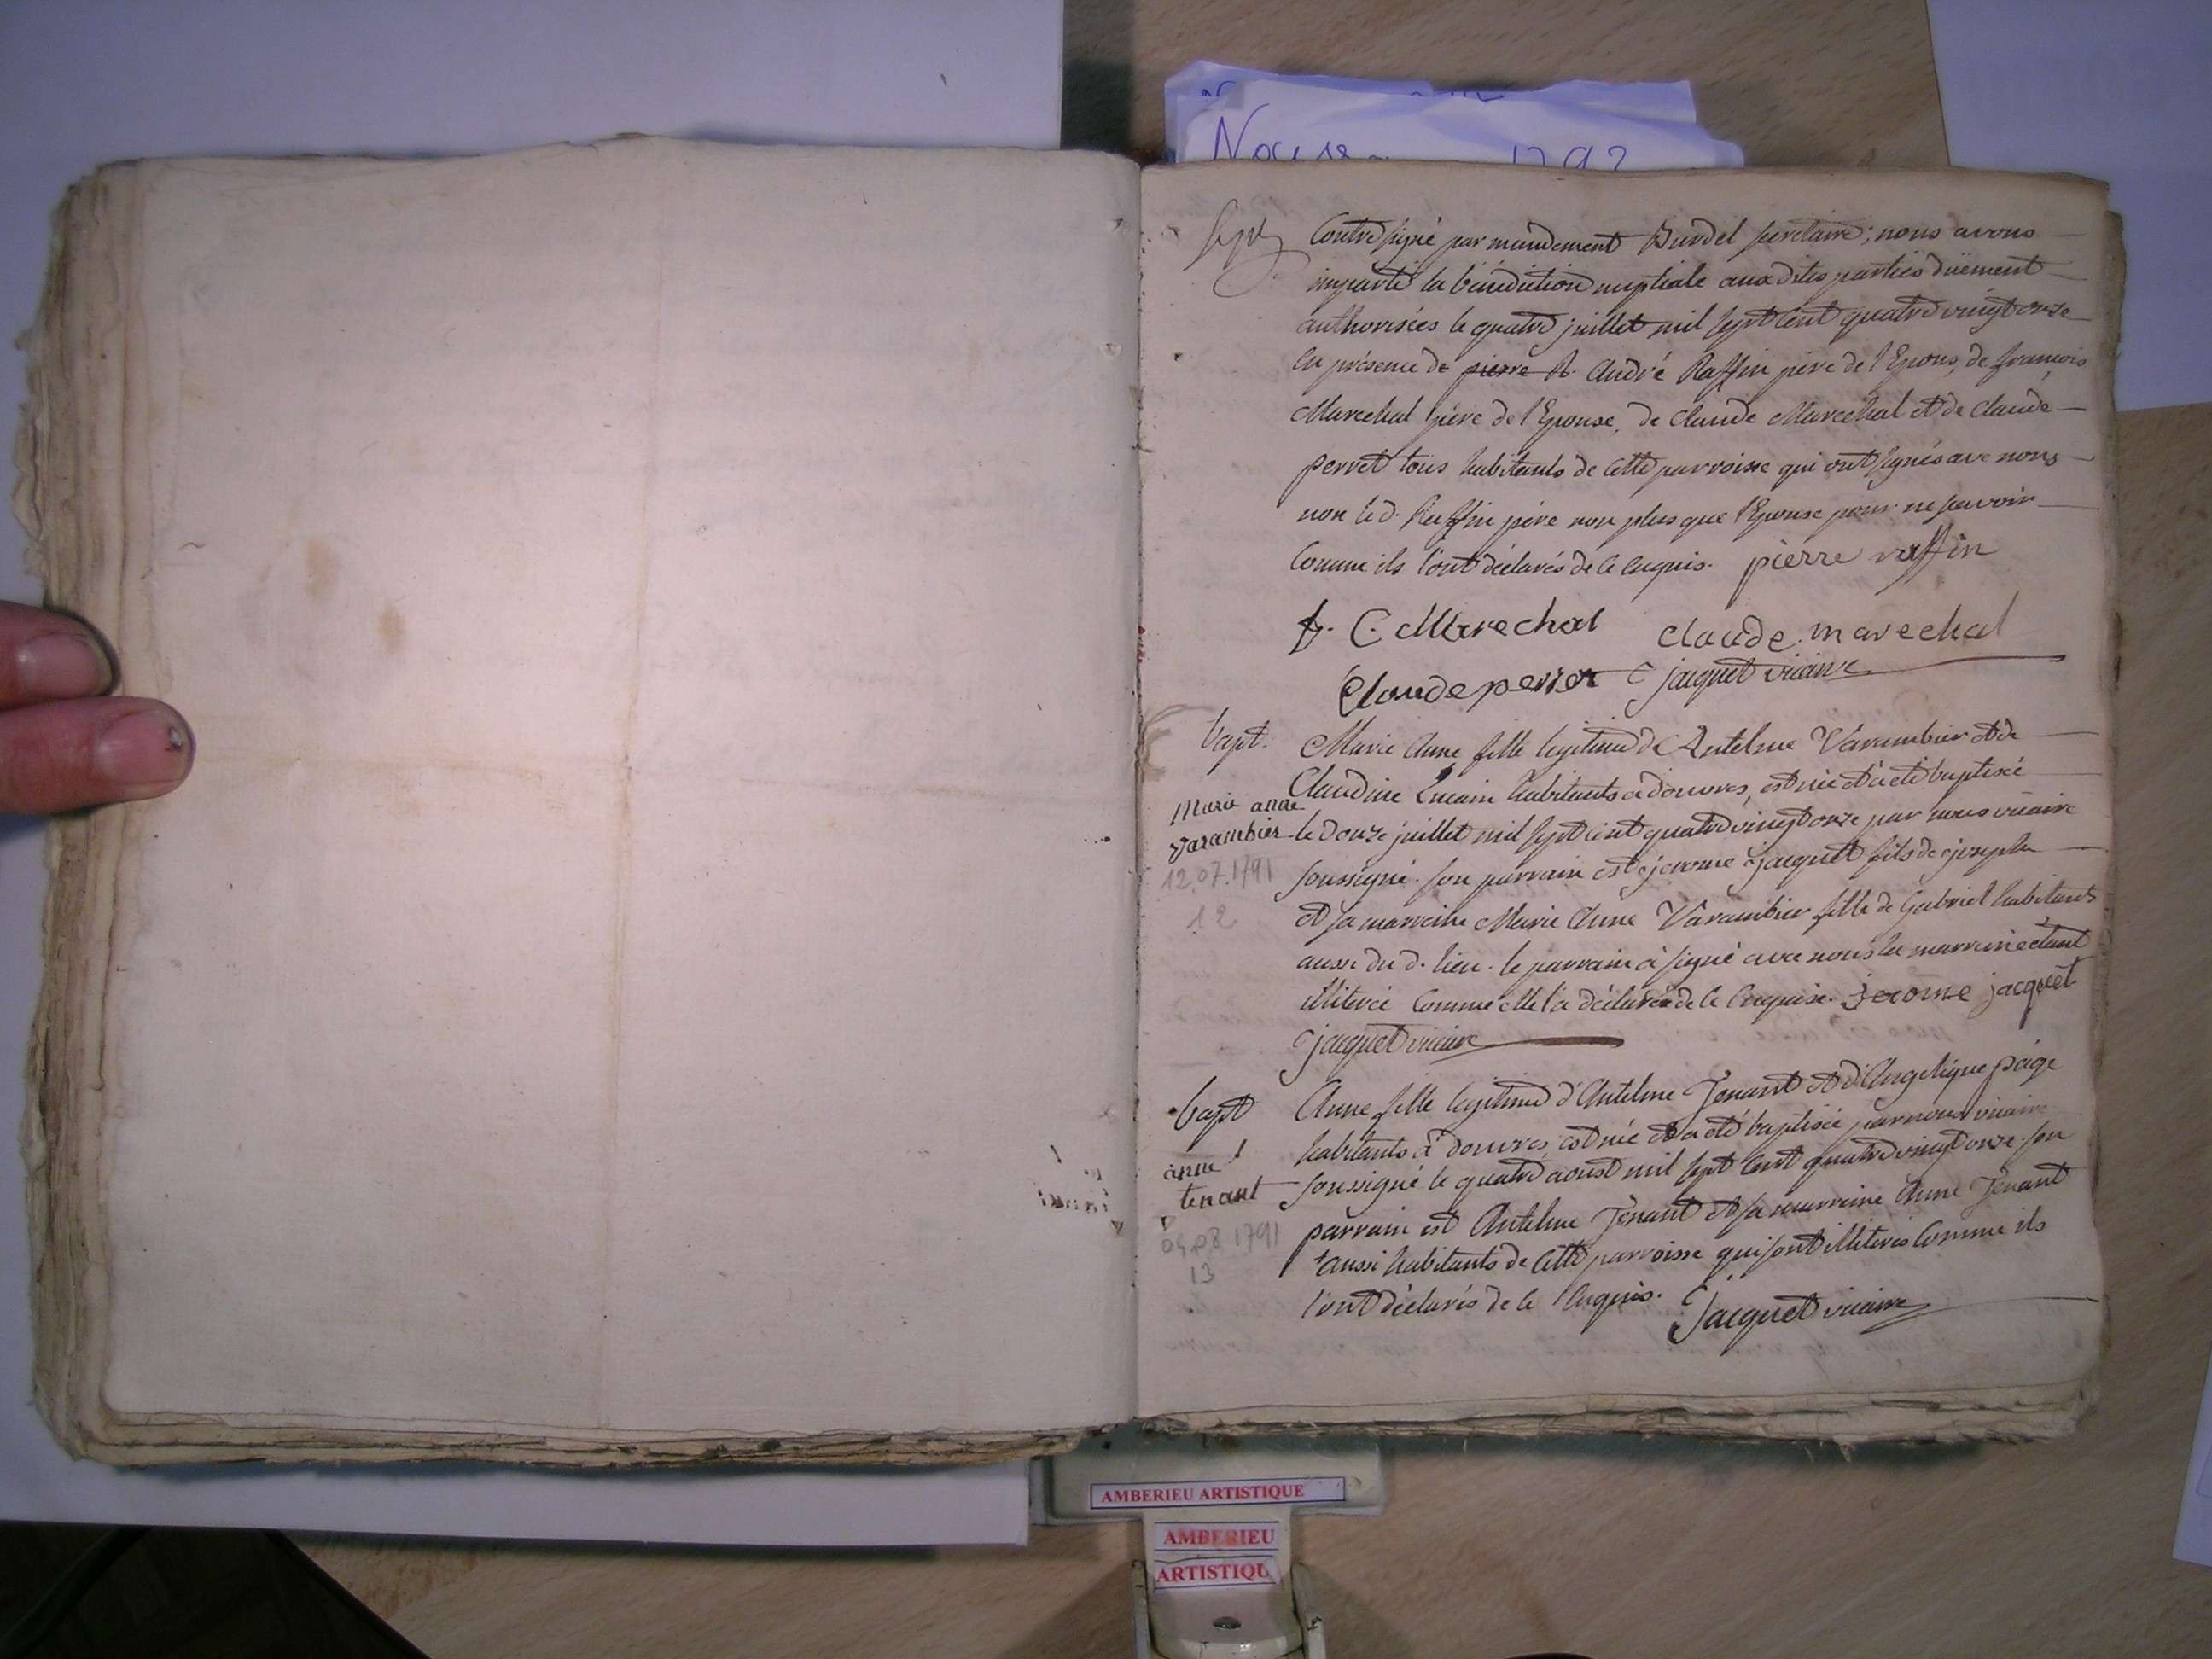 sept
Contresigné par mandement Burdel secretaire; nous avons
imparti la bénédiction nuptiale auxdites parties düement
authorisées le quatre juillet mil sept cent quatre vingt onze
en présence de pierre R. André Raffin père de l'Epoux, de françois
Marechal père de l'Epouse, de Claude Marechal et de Claude
perret tous habitants de cette parroisse qui ont signés avec nous
non led. Raffin père non plus que l'Epouse pour ne savoir
Comme ils l'ont déclarés de ce enquis. pierre raffin
f. C. Marechal claude marechal
Claude perret jacquet vicaire
bapt. Marie Anne fille legitime de Antelme Varambier et de
Claudine habitants a douvres, est née et a eté baptisée
Marie anne
varambier
12.07.1791
12
le douze juillet mil sept cent quatre vingt onze par nous vicaire
soussigné. son parrain est jerome jacquet fils de joseph
et sa marraine Marie Anne Varambier fille de Gabriel habitants
aussi du d. lieu. le parrain a signé avec nous la marraine étant
illiterée Comme elle l'a déclarée de ce enquise. jerome jacquet
jacquet vicaire
bapt
anne
tenant
04.08 1791
13
Anne fille legitime d'Antelme Tenant et d'Angelique page
habitants a douvres, est née et a eté baptisée par nous vicaire
soussigné le quatre aoust mil sept cent quatre vingt onze. son
parrain est Antelme Tenant et sa marraine Anne Tenant
aussi habitants de cette parroisse qui sont illiterés Comme ils
l'ont déclarés de ce enquis. Jacquet vicaire
AMBERIEU ARTISTIQUE
AMBERIEU
ARTISTIQU